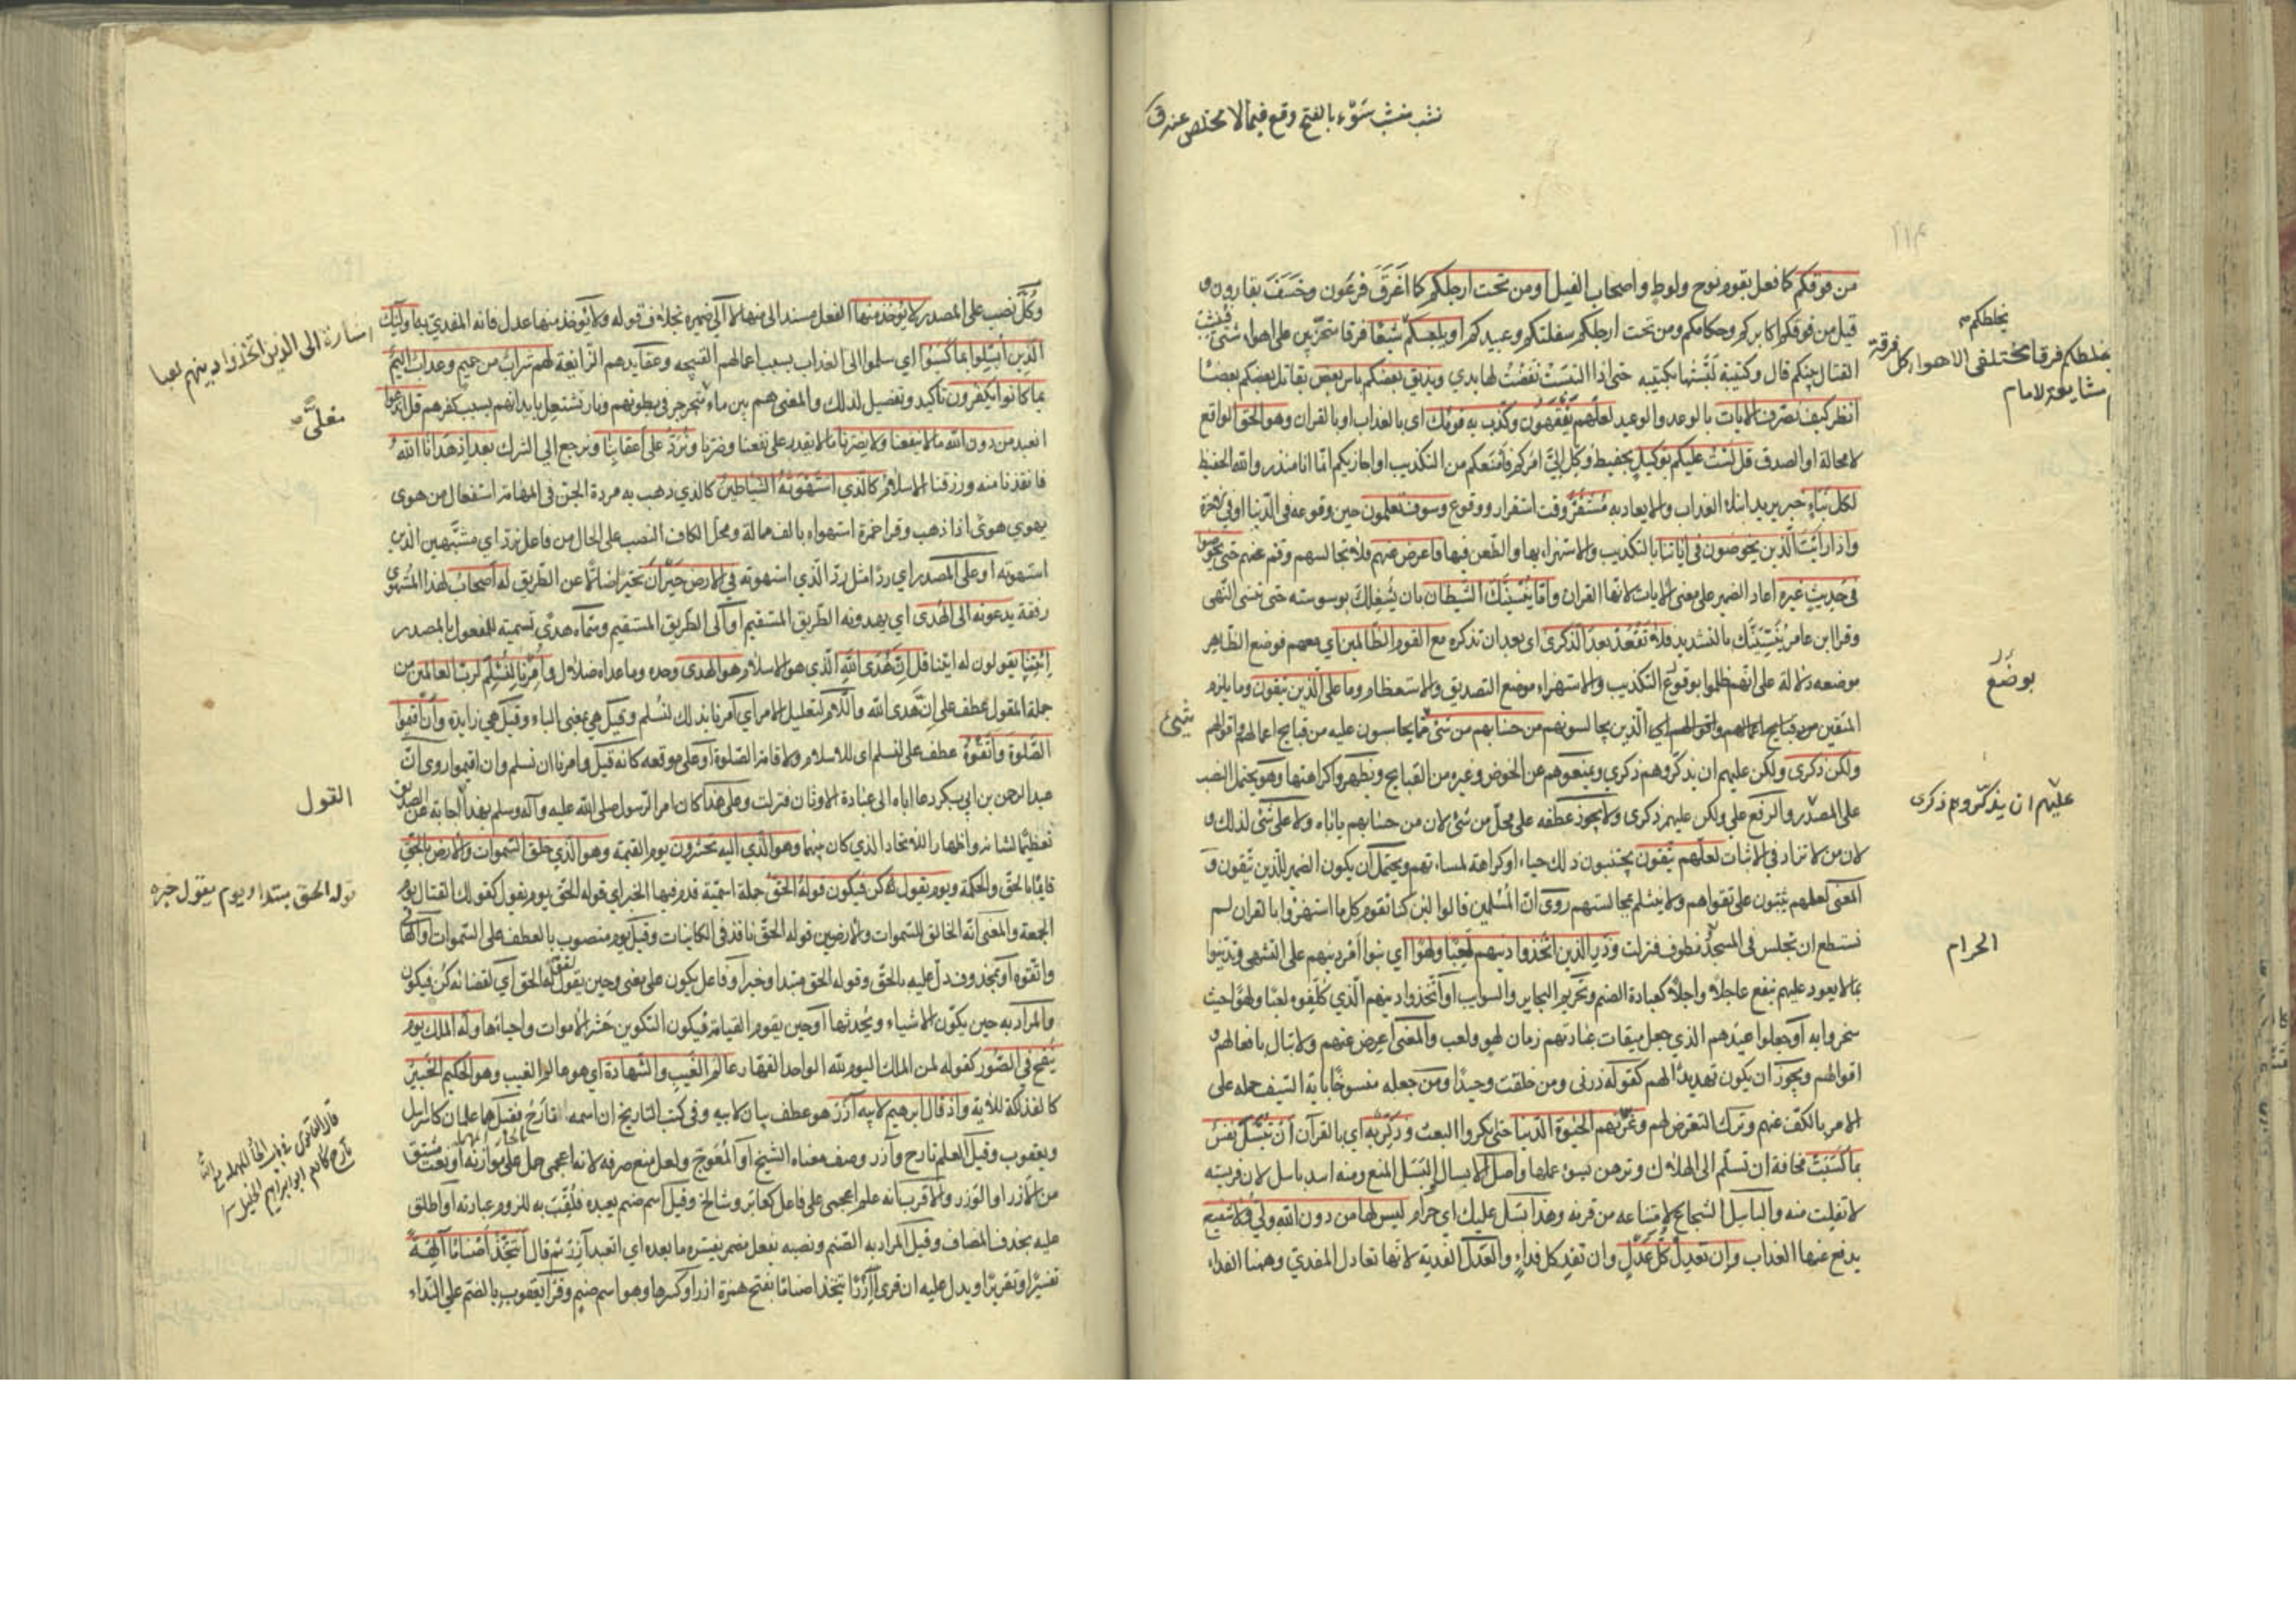 نشب ينشب نشوء بالفتح وقع فيما لا مخلص عنه ق
٢١٤
من فوقكم كما فعل بقوم نوح ولوط واصحاب الفيل او من تحت ارجلكم كما اغرق فرعون وخسف بقارون و
قيل من فوقكم اكابركم وحكامكم ومن تحت ارجلكم سفلتكم وعبيدكم او يلبسكم شيعا فرقا متحزبين على اهواء شتى فينشب
القتال بينكم قال وكتيبة لبستها بكتيبة حتى اذا التبست نفضت لها يدي ويذيق بعضكم باس بعض يقاتل بعضكم بعضا
انظر كيف نصرف الايات بالوعد والوعيد لعلهم يفقهون وكذب به قومك اي بالعذاب او بالقران وهو الحق الواقع
لا محالة او الصدق قل لست عليكم بوكيل بحفيظ وكل الي امركم فامنعكم من التكذيب او اجازيكم انما انا منذر والله الحفيظ
لكل نباء خبر يريد انباء العذاب والايعاد به مستقر وقت استقرار ووقوع وسوف تعلمون حين وقوعه في الدنيا او في الاخرة
واذا رايت الذين يخوضون في اياتنا بالتكذيب والاستهزاء بها والطعن فيها فاعرض عنهم فلا تجالسهم وقم عنهم حتى يخوضوا
في حديث غيره اعاد الضمير على معنى الايات لانها القران واما ينسينك الشيطان بان يشغلك بوسوسته حتى تنسى النهى
وقرا ابن عامر ينسينك بالتشديد فلا تقعد بعد الذكرى اي بعد ان تذكره مع القوم الظالمين اي معهم فوضع الظاهر
موضعه دلالة على انهم ظلموا بوقوع التكذيب والاستهزاء موضع التصديق والاستعظام وما على الذين يتقون وما يلزم
المتقين من قبايح اعمالهم واقوالهم اي الذين يجالسونهم من حسابهم من شئ مما يحاسبون عليه من قبايح اعمالهم واقوالهم
ولكن ذكرى ولكن عليهم ان يذكروهم ذكرى ويمنعوهم عن الخوض وغيره من القبايح ويظهروا كراهتها وهو يحتمل النصب
على المصدر والرفع على ولكن عليهم ذكرى ولا يجوز عطفه على محل من شئ لان من حسابهم ياباه ولا على شئ لذلك و
لان من لا تزاد في الاثبات لعلهم يتقون يجتنبون ذلك حياء او كراهة لمساءتهم ويحتمل ان يكون الضمير للذين يتقون و
المعنى لعلهم يثبتون على تقواهم ولا ينثلم بمجالستهم روى ان المسلمين قالوا لئن كنا نقوم كل ما استهزؤا بالقران لم
نستطع ان نجلس في المسجد ونطوف فنزلت وذر الذين اتخذوا دينهم لعبا ولهوا اي بنوا امر دينهم على التشهى وتدينوا
بما لا يعود عليهم بنفع عاجلا واجلا كعبادة الصنم وتحريم البحاير والسوايب او اتخذوا دينهم الذي كلفوه لعبا ولهوا حيث
سخروا به او جعلوا عيدهم الذي جعل ميقات عبادتهم زمان لهو ولعب والمعنى اعرض عنهم ولا تبال بافعالهم و
اقوالهم ويجوز ان يكون تهديدا لهم كقوله ذرنى ومن خلقت وحيدا ومن جعله منسوخا باية السيف حمله على
الامر بالكف عنهم وترك التعرض لهم وغرتهم الحيوة الدنيا حتى انكروا البعث وذكر به اي بالقرآن ان تبسل نفس
بما كسبت مخافة ان تسلم الى الهلاك وترهن بسوء عملها واصل الابسال البسل المنع ومنه اسد باسل لان فريسته
لا تفلت منه والباسل الشجاع لامتناعه من قرنه وهذا بسل عليك اي حرام ليس لها من دون الله ولي ولا شفيع
يدفع عنها العذاب وان تعدل كل عدل وان تفد كل فداء والعدل الفدية لانها تعادل المفدي وههنا الفداء
يخلطكم
يخلطكم فرقا مختلفى الاهواء كل فرقة
مشايعة لامام
بوضع
شيئ
عليهم ان يذكروهم ذكرى
الحرام
وكل نصب على المصدر لا يؤخذ منها الفعل مسند الى منها لا الى ضميره بخلاف قوله ولا يؤخذ منها عدل فانه المفدي به اولئك
الذين ابسلوا بما كسبوا اي سلموا الى العذاب بسبب اعمالهم القبيحه وعقايدهم الزايغة لهم شراب من حميم وعذاب اليم
بما كانوا يكفرون تاكيد وتفصيل لذلك والمعنى هم بين ماء يتجرجر في بطونهم ونار تشتعل بابدانهم بسبب كفرهم قل اندعوا
انعبد من دون الله ما لا ينفعنا ولا يضرنا ما لا يقدر على نفعنا وضرنا ونرد على اعقابنا ونرجع الى الشرك بعد اذ هدانا الله
فانقذنا منه ورزقنا الاسلام كالذي استهوته الشياطين كالذي ذهب به مردة الجن في المهامه استفعال من هوى
يهوي هوى اذا ذهب وقرا حمزة استهواه بالف ممالة ومحل الكاف النصب على الحال من فاعل نرد اي مشبهين الذي
استهوته او على المصدر اي ردا مثل رد الذي استهوته في الارض حيران متحيرا ضالا عن الطريق له اصحاب لهذا المستهوى
رفقة يدعونه الى الهدى اي يهدونه الطريق المستقيم او الى الطريق المستقيم وسماه هدى تسمية للمفعول بالمصدر
ائتنا يقولون له ائتنا قل ان هدى الله الذي هو الاسلام هو الهدى وحده وما عداه ضلال وامرنا لنسلم لرب العالمين من
جملة المقول عطف على ان هدى الله واللام لتعليل الامر اي امرنا بذلك لنسلم وقيل هي بمعنى الباء وقيل هي زايدة وان اقيموا
الصلوة واتقوه عطف على لنسلم اى للاسلام ولاقامة الصلوة او على موقعه كانه قيل وامرنا ان نسلم وان اقيموا روى ان
عبد الرحمن بن ابي بكر دعا اباه الى عبادة الاوثان فنزلت وعلى هذا كان امر الرسول صلى الله عليه وآله وسلم بهذا اجابة عن الصديق
تعظيما لشانه واظهارا للاتحاد الذي كان بينهما وهو الذي اليه تحشرون يوم القيمة وهو الذي خلق السموات والارض بالحق
قايما بالحق والحكمة ويوم يقول كن فيكون قوله الحق جملة اسمية قدم فيها الخبر اي قوله الحق يوم يقول كقولك القتال يوم
الجمعة والمعنى انه الخالق للسموات والارضين قوله الحق نافذ في الكاينات وقيل يوم منصوب بالعطف على السموات او الهاء في
واتقوه او بمحذوف دل عليه بالحق وقوله الحق مبتدا وخبر او فاعل يكون على معنى وحين يقول لقوله الحق اي لقضائه كن فيكون
والمراد به حين يكون الاشياء ويحدثها او حين يقوم القيامة فيكون التكوين حشر الاموات واحياءها وله الملك يوم
ينفخ في الصور كقوله لمن الملك اليوم لله الواحد القهار عالم الغيب والشهادة اي هو عالم الغيب وهو الحكيم الخبير
كالفذلكة للاية واذ قال ابرهيم لابيه آزر هو عطف بيان لابيه وفي كتب التاريخ ان اسمه تارخ فقيل هما علمان كاسرايل
ويعقوب وقيل العلم تارح وآزر وصف معناه الشيخ او المعوج ولعل منع صرفه لانه اعجمى حمل على موازنه او نعت مشتق
من الازر او الوزر والاقرب انه علم اعجمى على فاعل كعابر وشالخ وقيل اسم صنم يعبده فلقب به للزوم عبادته او اطلق
عليه بحذف المضاف وقيل المراد به الصنم ونصبه بفعل مضمر يفسره ما بعده اي اتعبد آزر ثم قال اتتخذ اصناما آلهة
تفسيرا وتقريرا ويدل عليه ان قرى أازرا تتخذ اصناما بفتح همزة ازر وكسرها وهو اسم صنم وقرا يعقوب بالضم على النداء
اشارة الى الذين اتخذوا دينهم لعبا
مغلى
القول
قوله الحق مبتدا ويوم يقول خبره